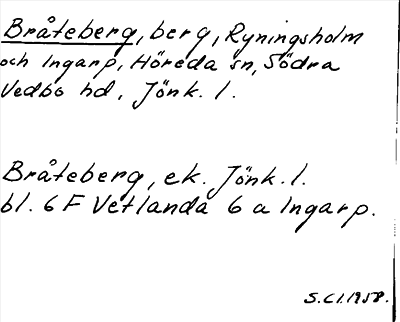 Bråteberg, berg, Ryningsholm
och Ingarp, Höreda sn, Södra
Vedbo hd, Jönk. l.
Bråteberg, ek. Jönk. l.
bl. 6 F Vetlanda 6 a Ingarp.
S.Cl.1958.